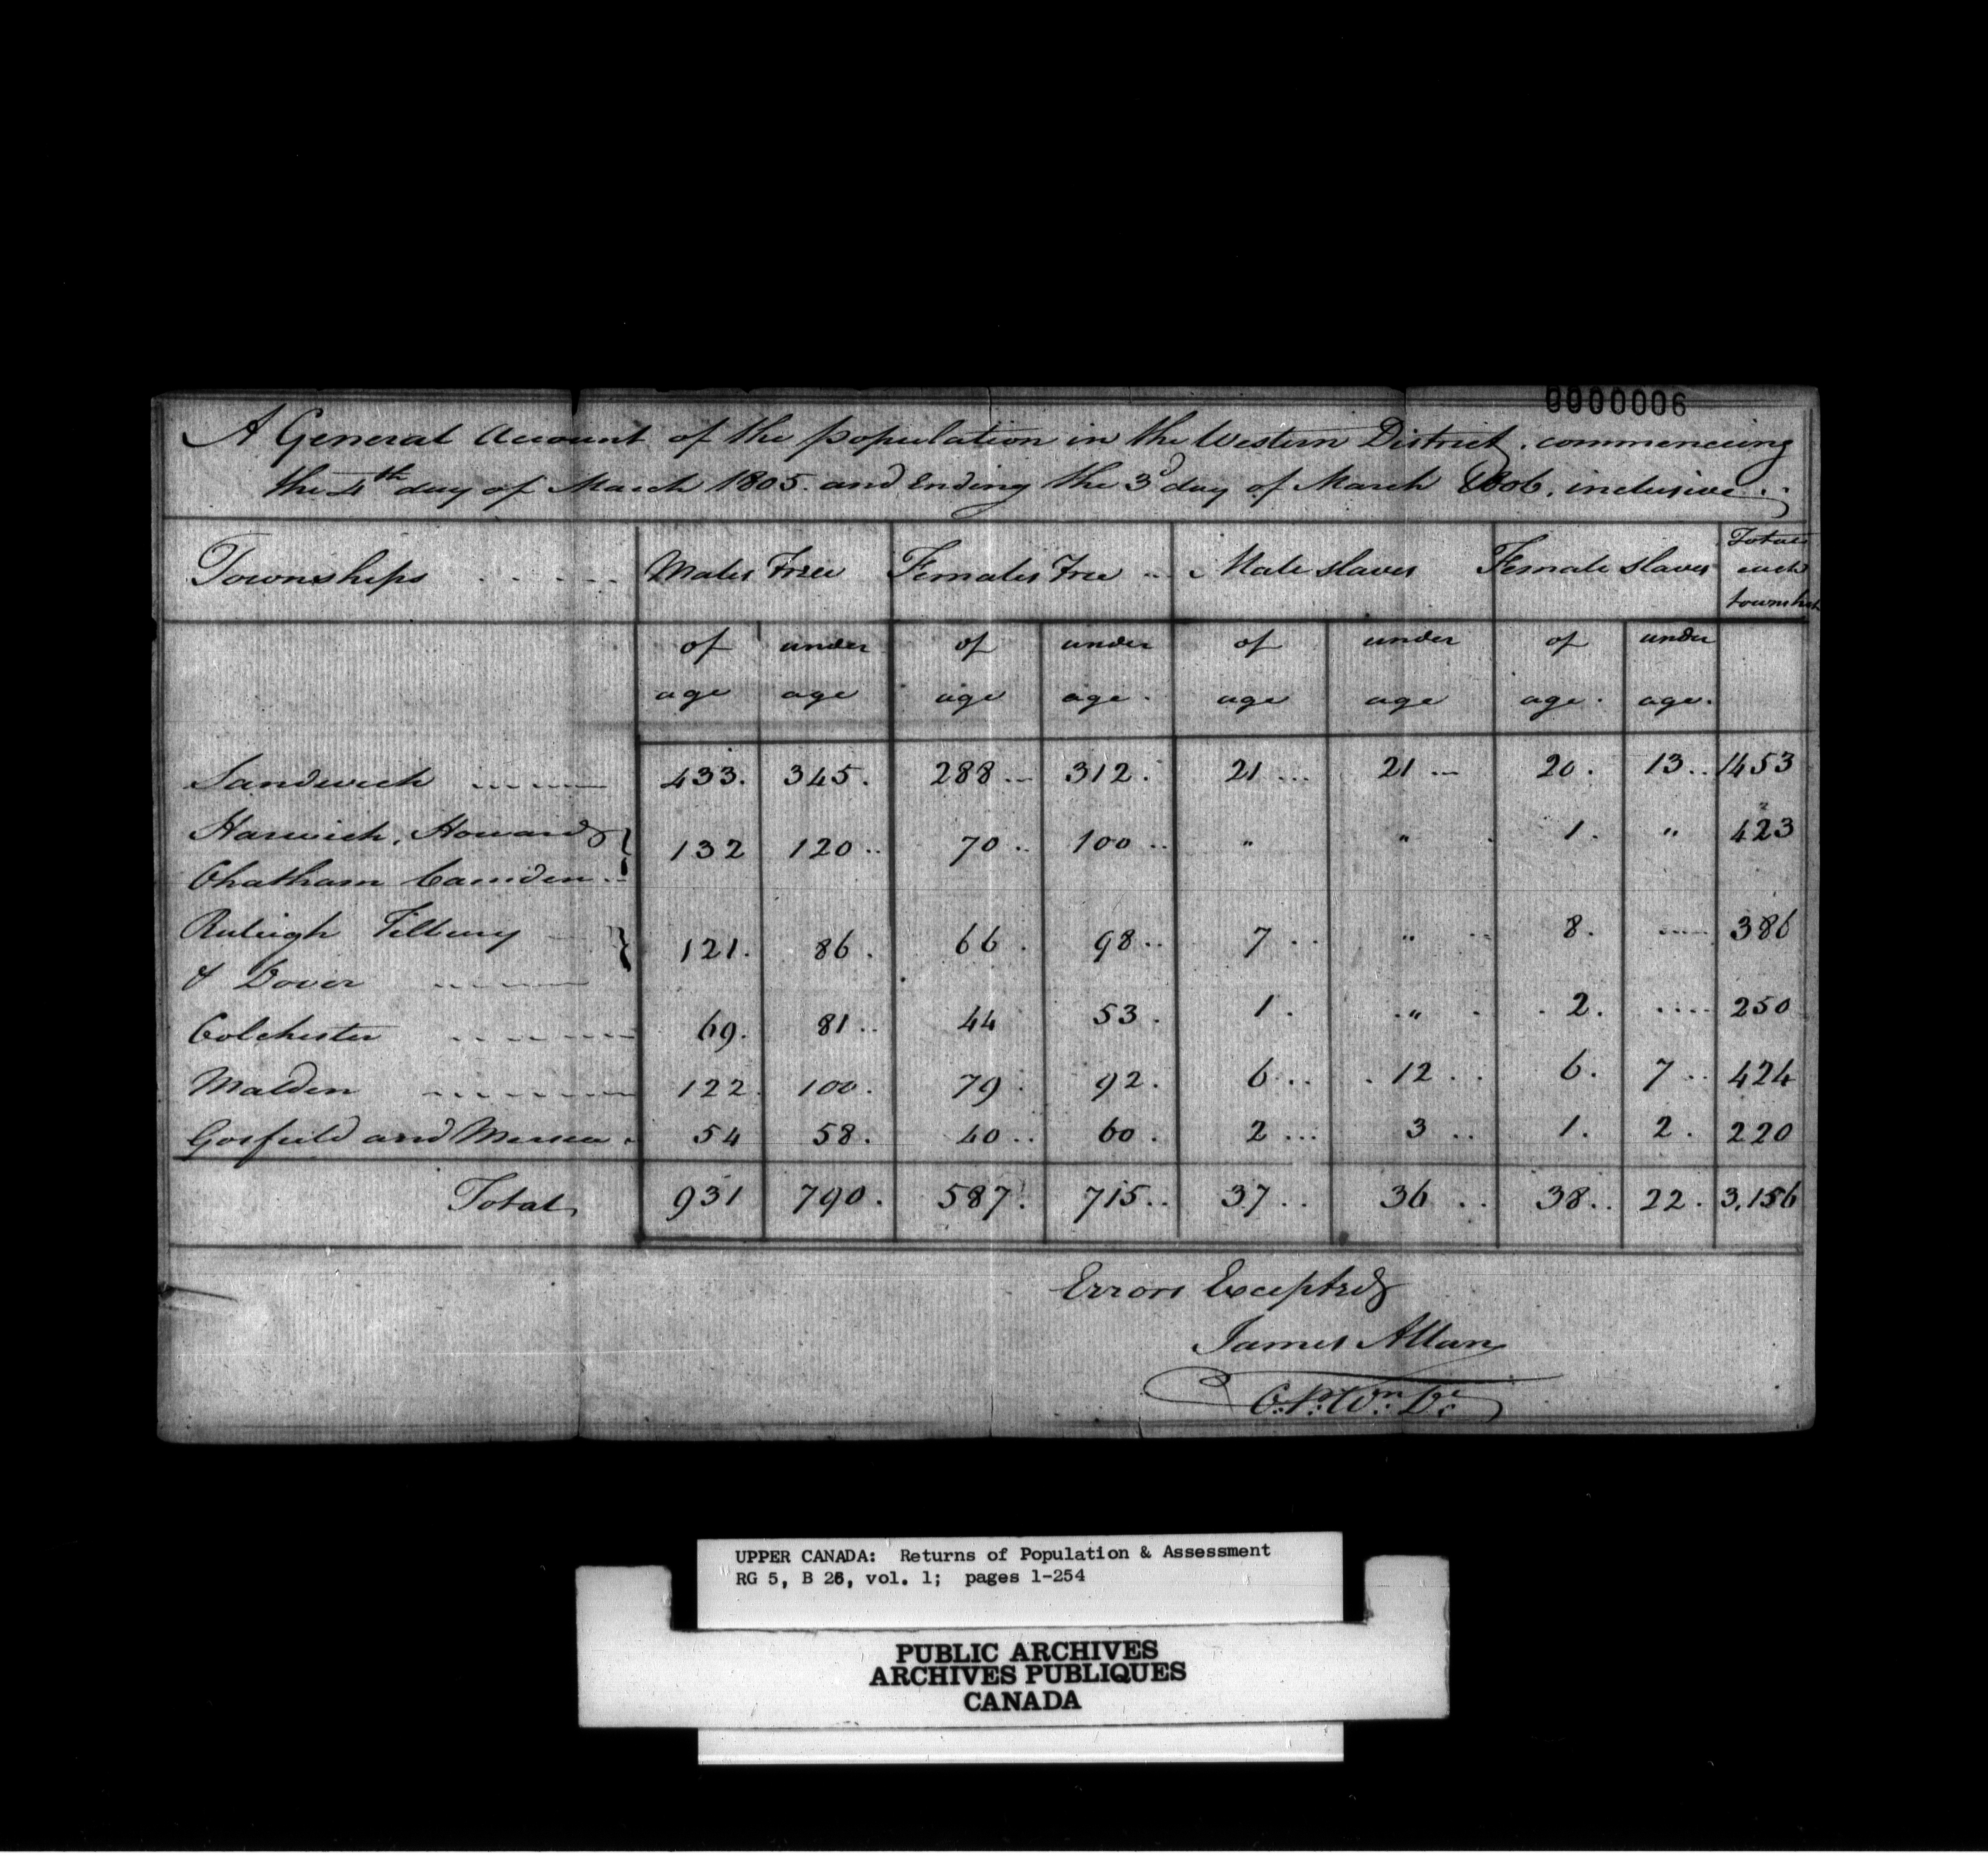 0000006
A General Account of the population in the Western District, commencing
the 4th day of March 1805. and Ending the 3d day of March 1806, inclusive.
Townships Males Free Females Free Male slaves Female slaves Total each township
of age under age of age under age. of age under age of age. under age.
Sandwich 433. 345. 288 312. 21 21 20. 13 1453
Harwich, Howard } 132 120 70 100 " " 1. " 423
Chatham Camden
Raleigh Tilbury } 121. 86. 66. 98 7 " 8. 386
& Dover
Colchester 69. 81 44 53. 1. " 2. 250
Malden 122. 100. 79 92. 6 12 6. 7 424
Gosfield and Mersea. 54 58. 40 60. 2 3 1. 2. 220
Total 931 790. 587. 715 37 36 38 22. 3,156
Errors Excepted
James Allan
C.P. Wn. De
UPPER CANADA: Returns of Population & Assessment
RG 5, B 26, vol. 1; pages 1-254
PUBLIC ARCHIVES
ARCHIVES PUBLIQUES
CANADA